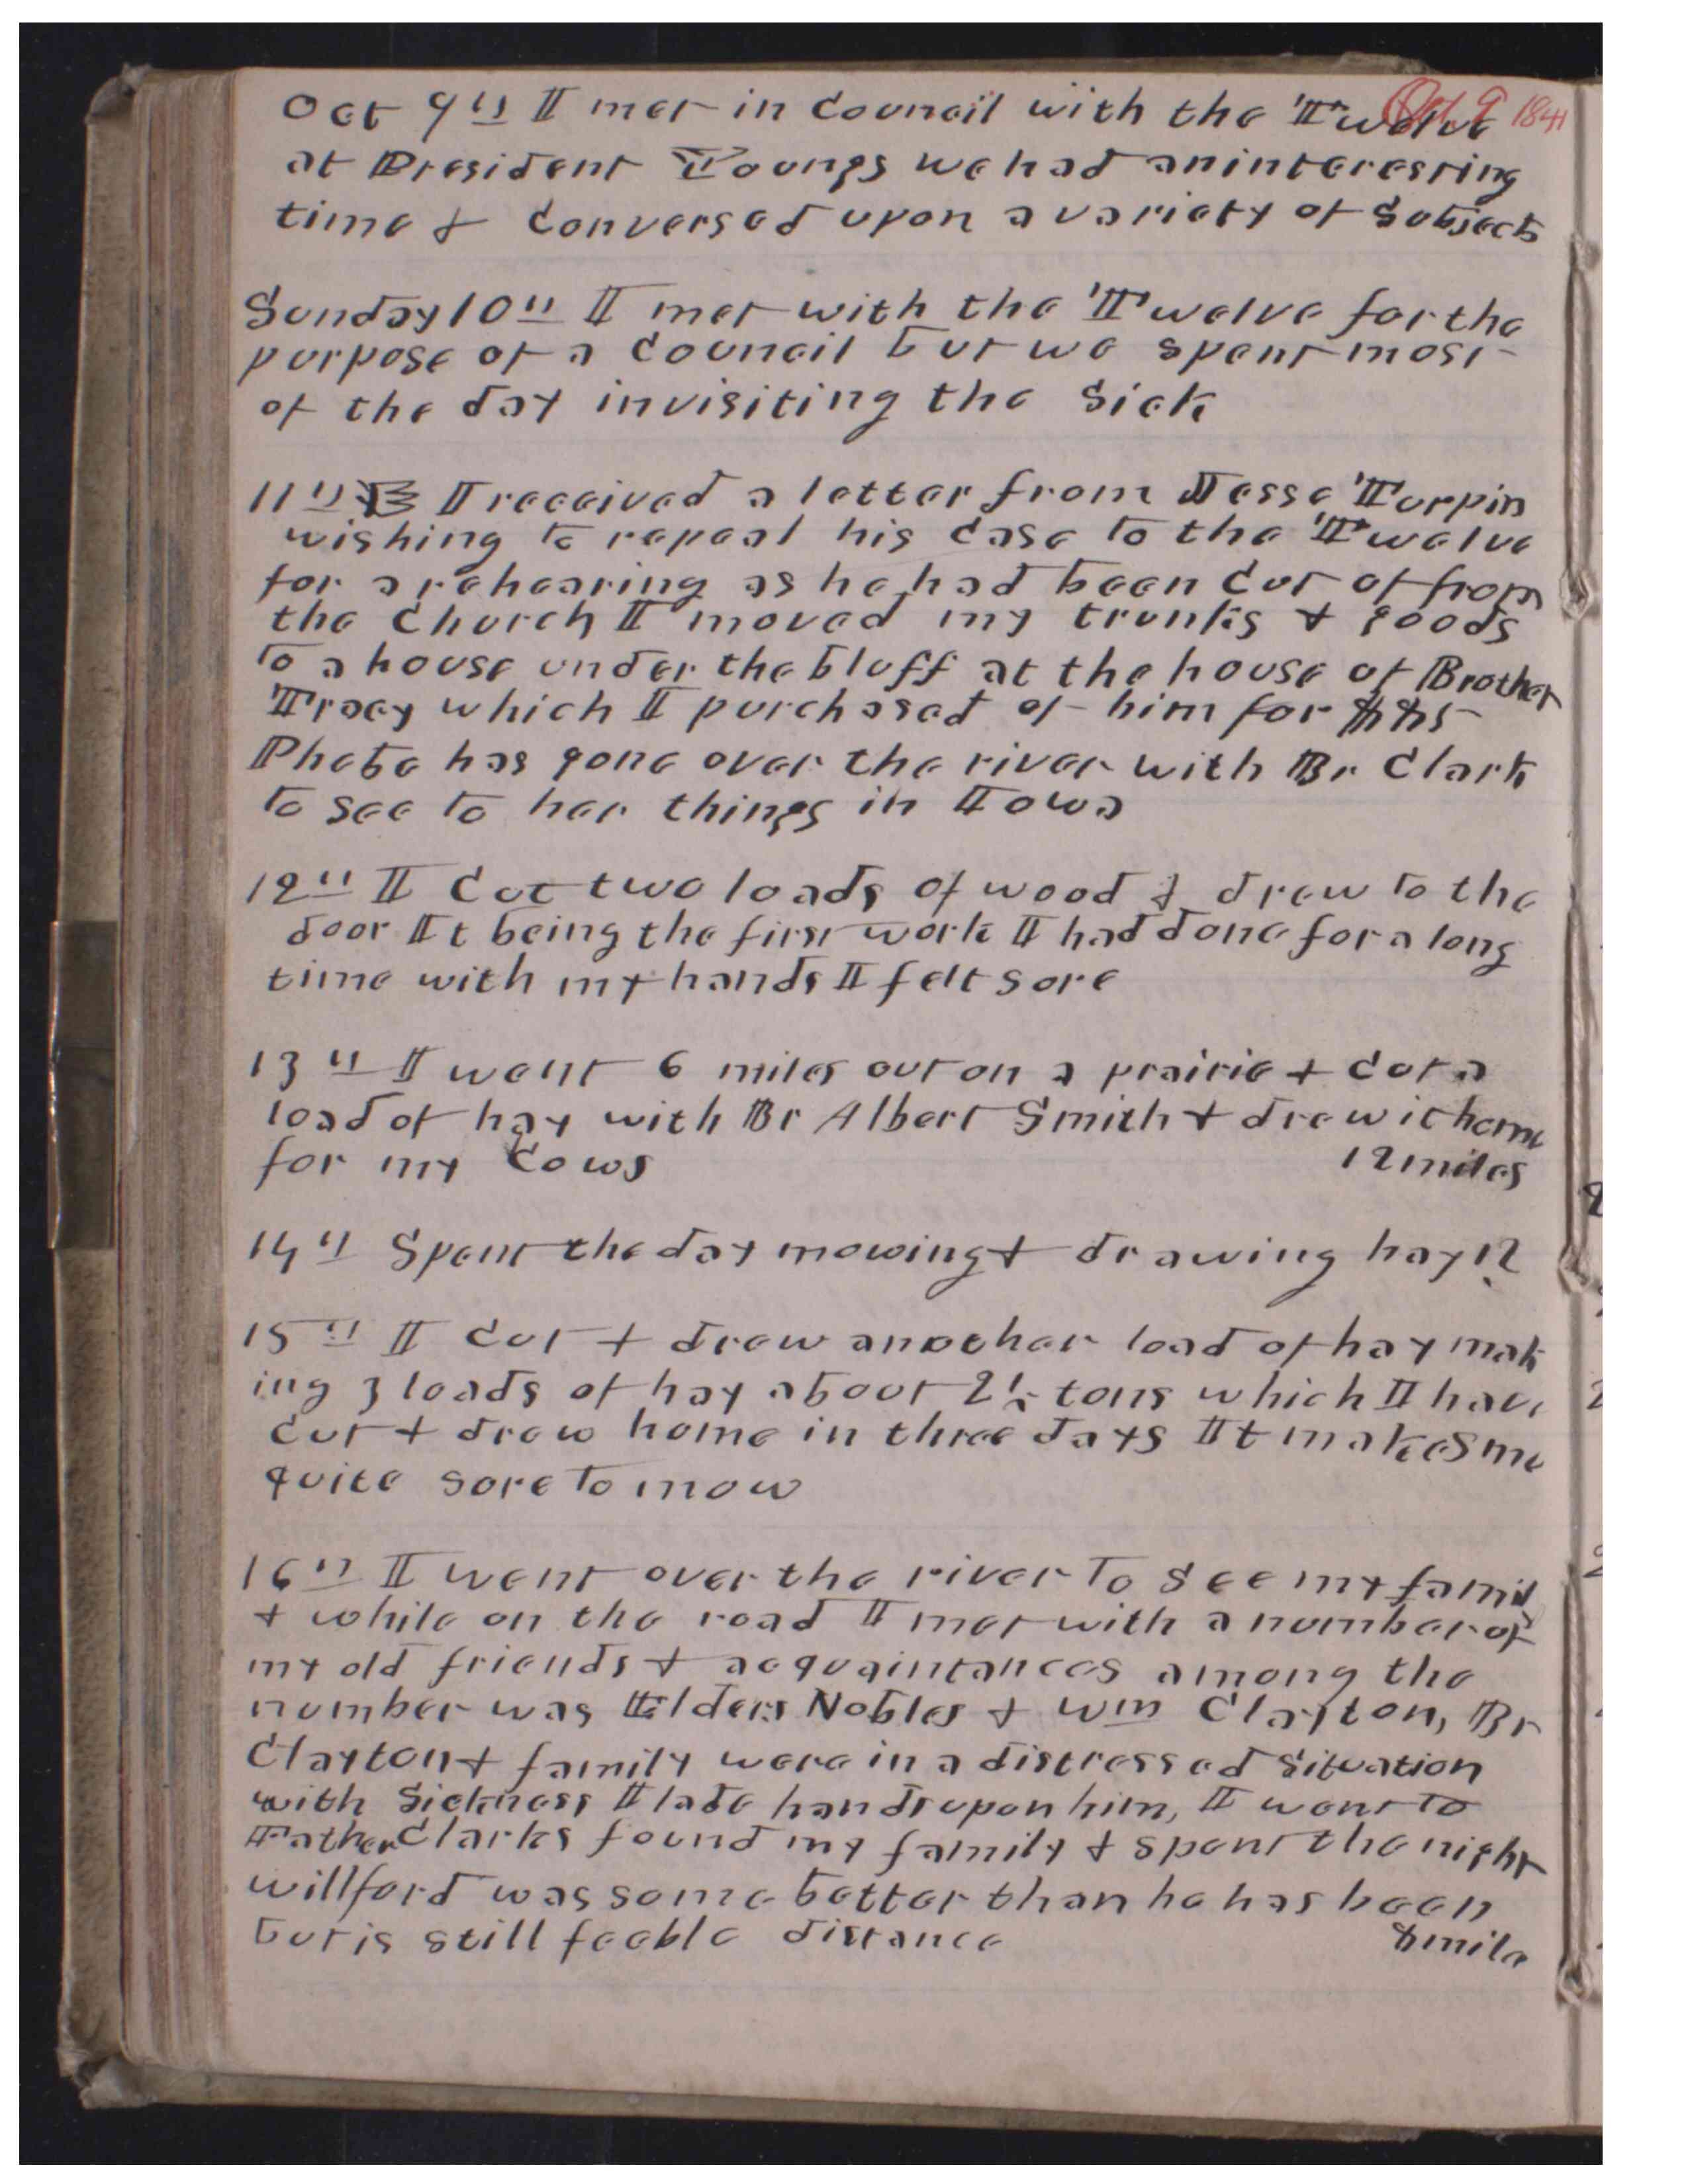 Oct 9th I met in Council with the Twelve
Oct. 9 1841
at President Youngs we had an interesting
time & Conversed upon a variety of Subjects
Sunday 10th I met with the Twelve for the
purpose of a Council but we spent most
of the day in visiting the Sick
11th I received a letter from Jesse Turpin
wishing to repeal his Case to the Twelve
for a rehearing as he had been Cut of from
the Church I moved my trunks & goods
to a house under the bluff at the house of Brother
Tracy which I purchased of him for
Phebe has gone over the river with Br Clark
to see to her things in Iowa
12th I Cut two loads of wood & drew to the
door It being the first work I had done for a long
time with my hands I felt sore
13th I went 6 miles out on a prairie & Cut a
load of hay with Br Albert Smith & drew it home
for my Cows 12 miles
14th Spent the day mowing & drawing hay 12
15th I Cut & drew another load of hay mak
ing 3 loads of hay about 2½ tons which I have
Cut & drew home in three days It makes me
quite sore to mow
16th I went over the river to See my family
& while on the road I met with a number of
my old friends & acquaintances among the
number was Elders Nobles & Wm Clayton, Br
Clayton & family were in a distressed Situation
with Sickness I lade hands upon him, I went to
Father Clarks found my family & spent the night
willford was some better than he has been
but is still feeble distance 8 mile